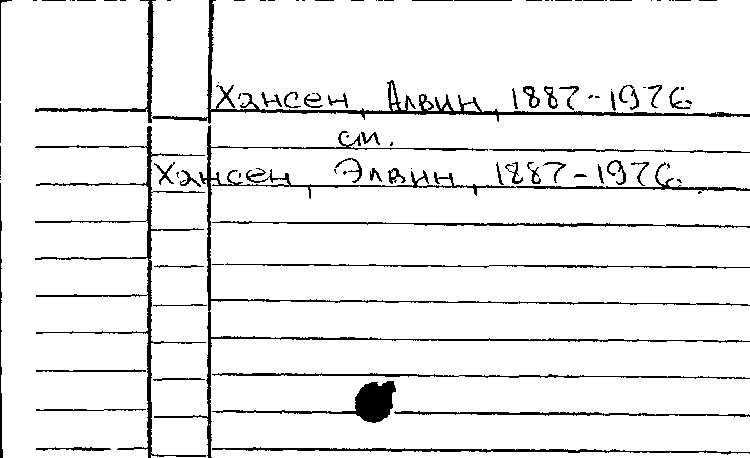 Хансен, Алвин, 1887-1976
см.
Хансен, Элвин, 1887-1976.